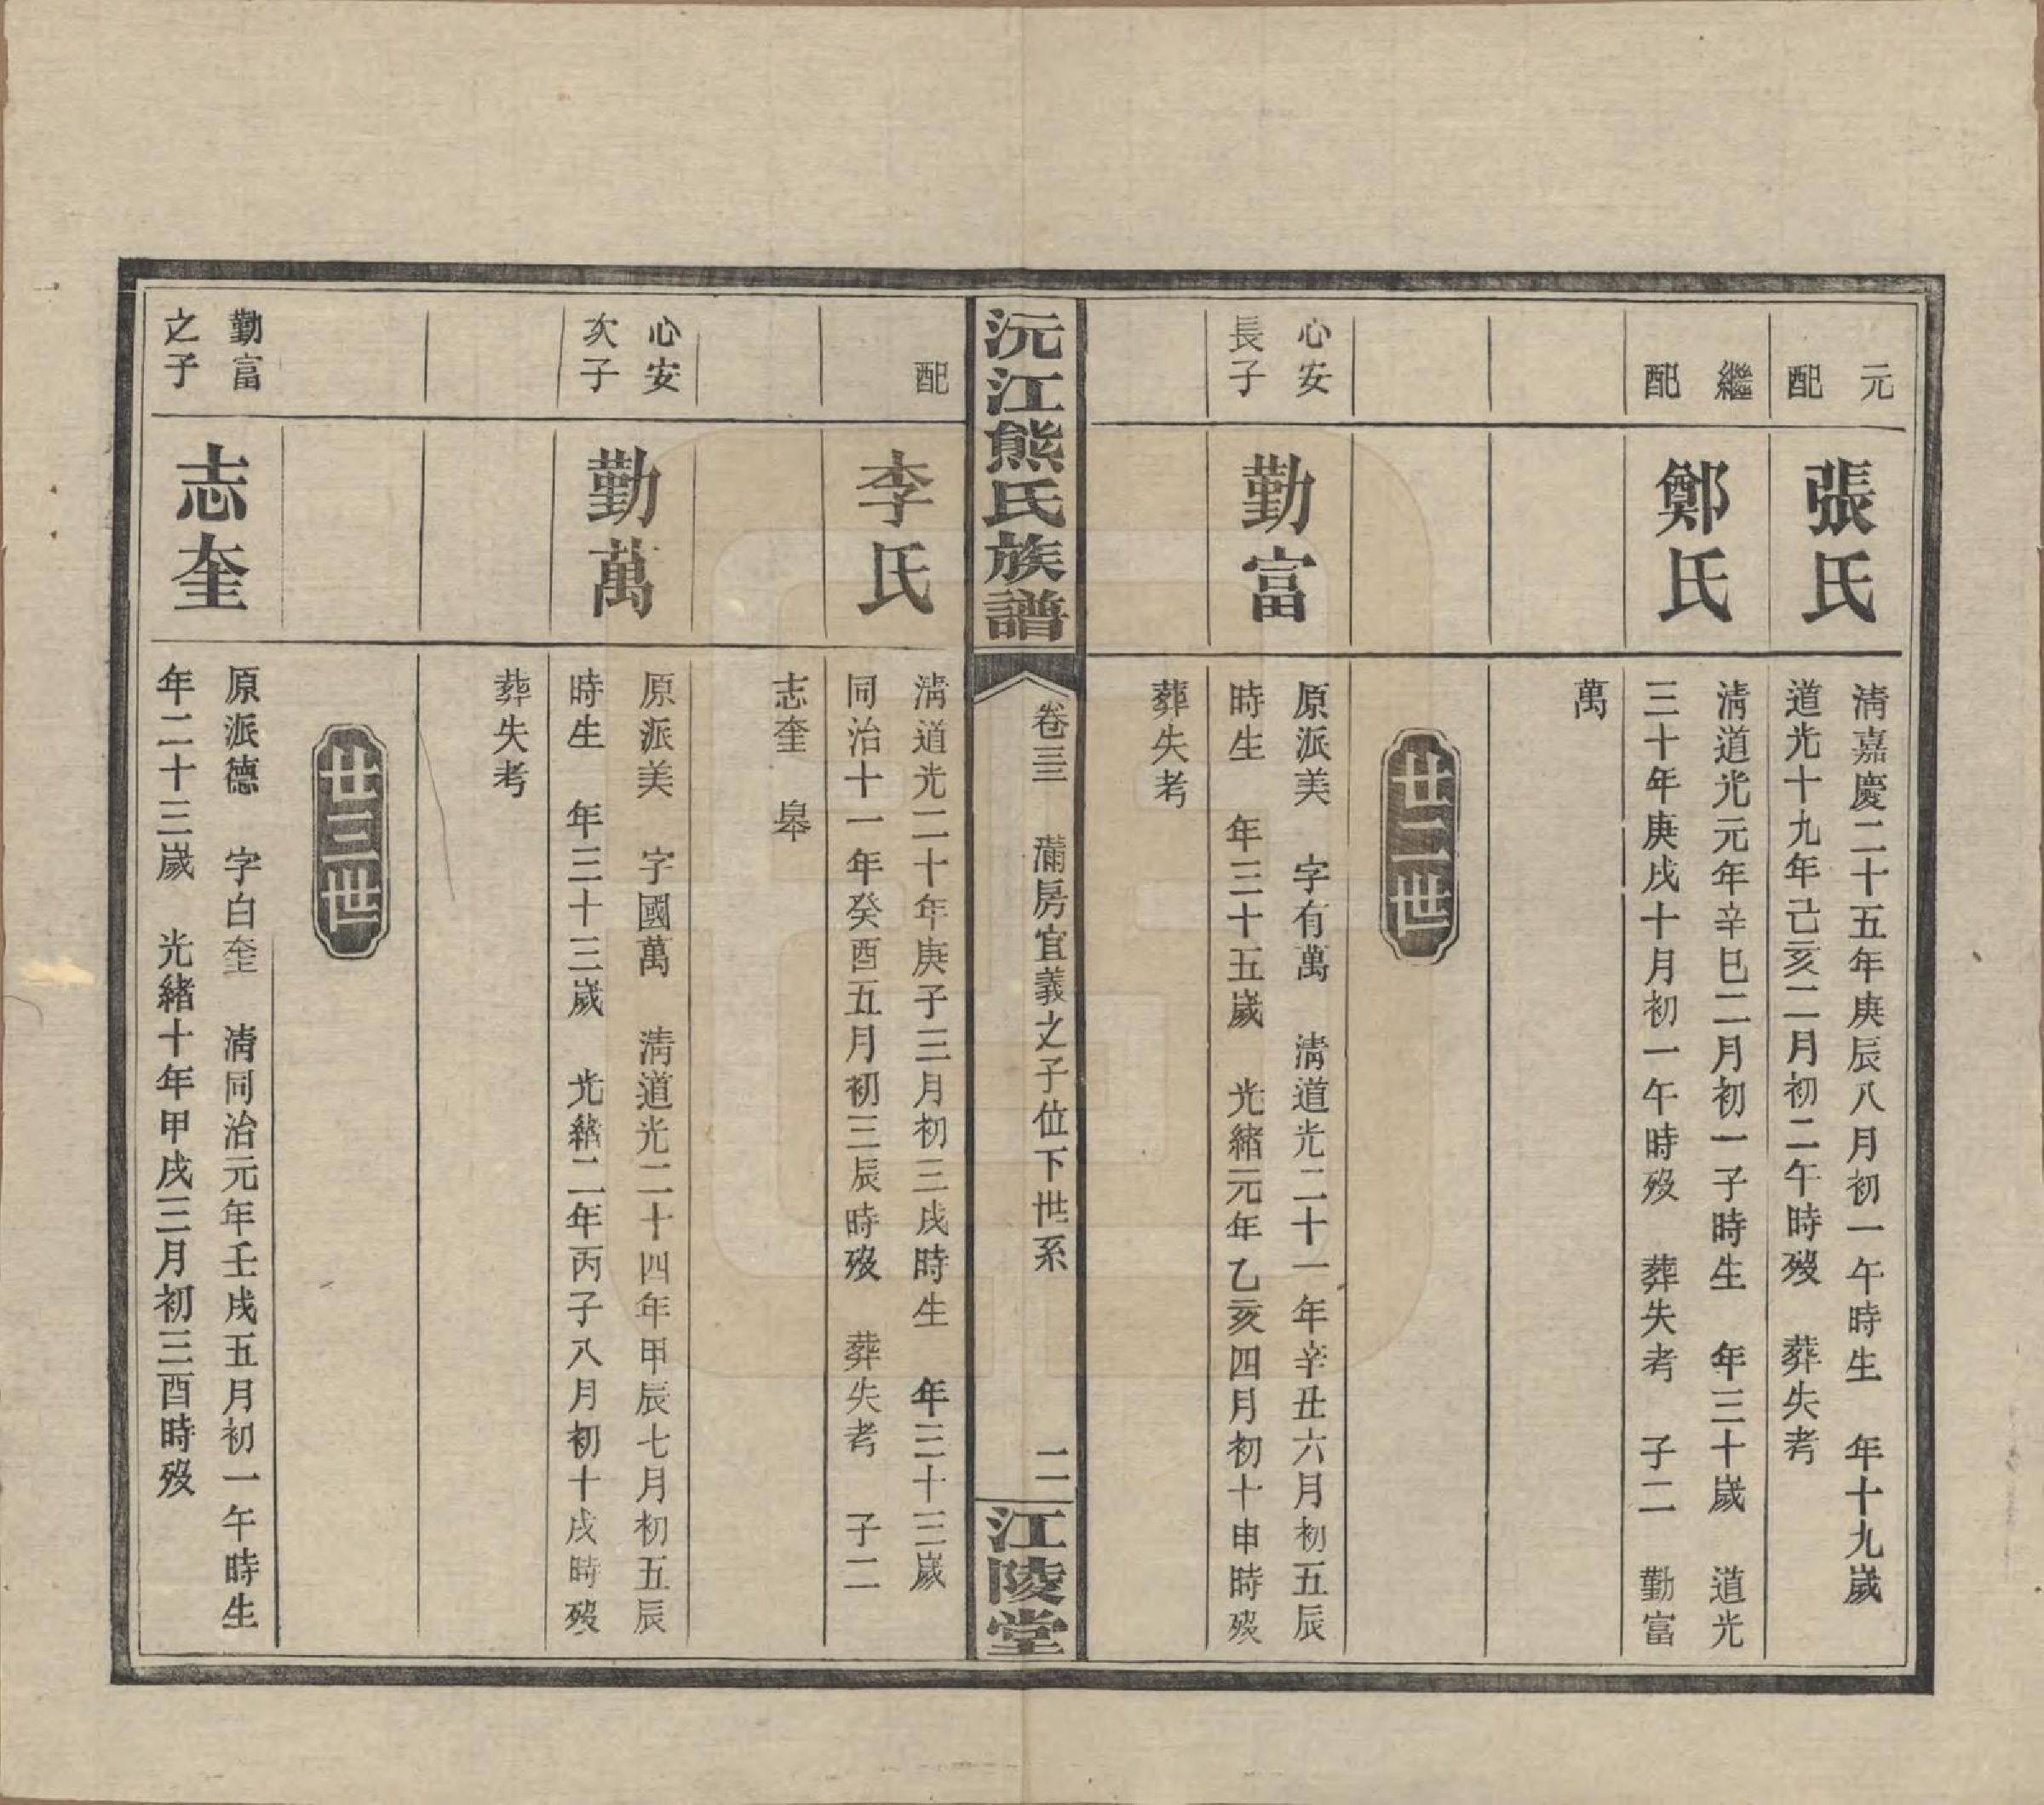 元配
張氏
淸嘉慶二十五年庚辰八月初一午時生　年十九歲
道光十九年己亥二月初二午時歿　葬失考
繼配
鄭氏
淸道光元年辛巳二月初一子時生　年三十歲　道光
三十年庚戌十月初一午時歿　葬失考　子二　勤富
萬
廿二世
心安
長子
勤富
原派美　字有萬　淸道光二十一年辛丑六月初五辰
時生　年三十五歲　光緒元年乙亥四月初十申時歿
葬失考
沅江熊氏族譜
卷三　滿房宜義之子位下世系
二
江陵堂
配
李氏
淸道光二十年庚子三月初三戌時生　年三十三歲
同治十一年癸酉五月初三辰時歿　葬失考　子二
志奎　皋
心安
次子
勤萬
原派美　字國萬　淸道光二十四年甲辰七月初五辰
時生　年三十三歲　光緒二年丙子八月初十戌時歿
葬失考
廿三世
勤富
之子
志奎
原派德　字白奎　淸同治元年壬戌五月初一午時生
年二十三歲　光緒十年甲戌三月初三酉時歿